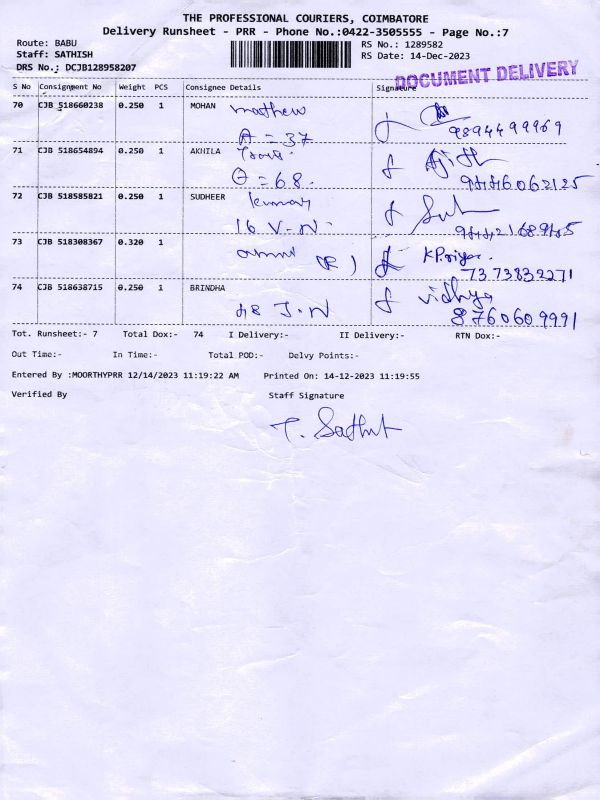 THE PROFESSIONAL COURIERS, COIMBATORE
Delivery Runsheet - PRR - Phone No.:0422-3505555 - Page No.:7
Route: BABU
Staff: SATHISH
DRS No.: DCJB128958207
RS No.: 1289582
RS Date: 14-Dec-2023
DOCUMENT DELIVERY
S No Consignment No Weight PCS Consignee Details Signature
70 CJB 518660238 0.250 1 MOHAN mathew
A = 37 9894499969
71 CJB 518654894 0.250 1 AKHILA Ajith
= 68.
72 CJB 518585821 0.250 1 SUDHEER kumar
16 V-N.
73 CJB 518308367 0.320 1 K Priya.
7373832271
74 CJB 518638715 0.250 1 BRINDHA vidhya
48 J.N 8760609991
Tot. Runsheet:- 7 Total Dox:- 74 I Delivery:- II Delivery:- RTN Dox:-
Out Time:- In Time:- Total POD:- Delvy Points:-
Entered By :MOORTHYPRR 12/14/2023 11:19:22 AM Printed On: 14-12-2023 11:19:55
Verified By Staff Signature